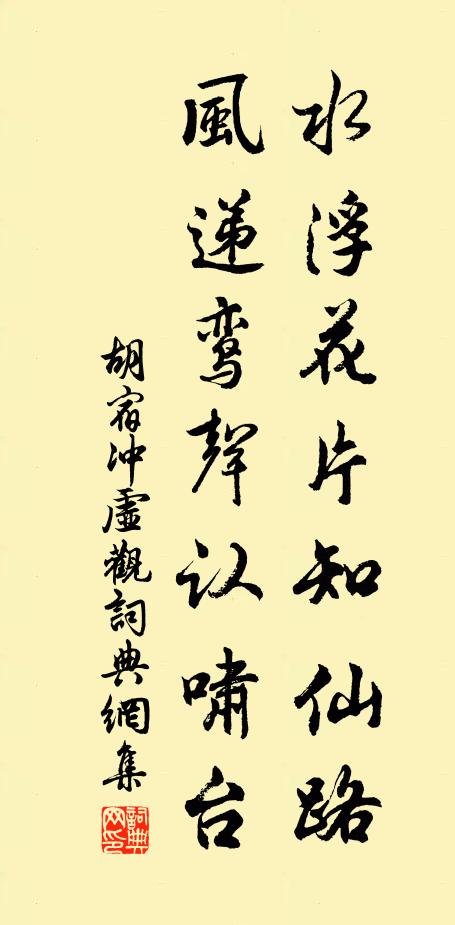 水浮花片知仙路
風递鸾聲认嘯台
胡宿冲虛觀詞典網集
詞典網印